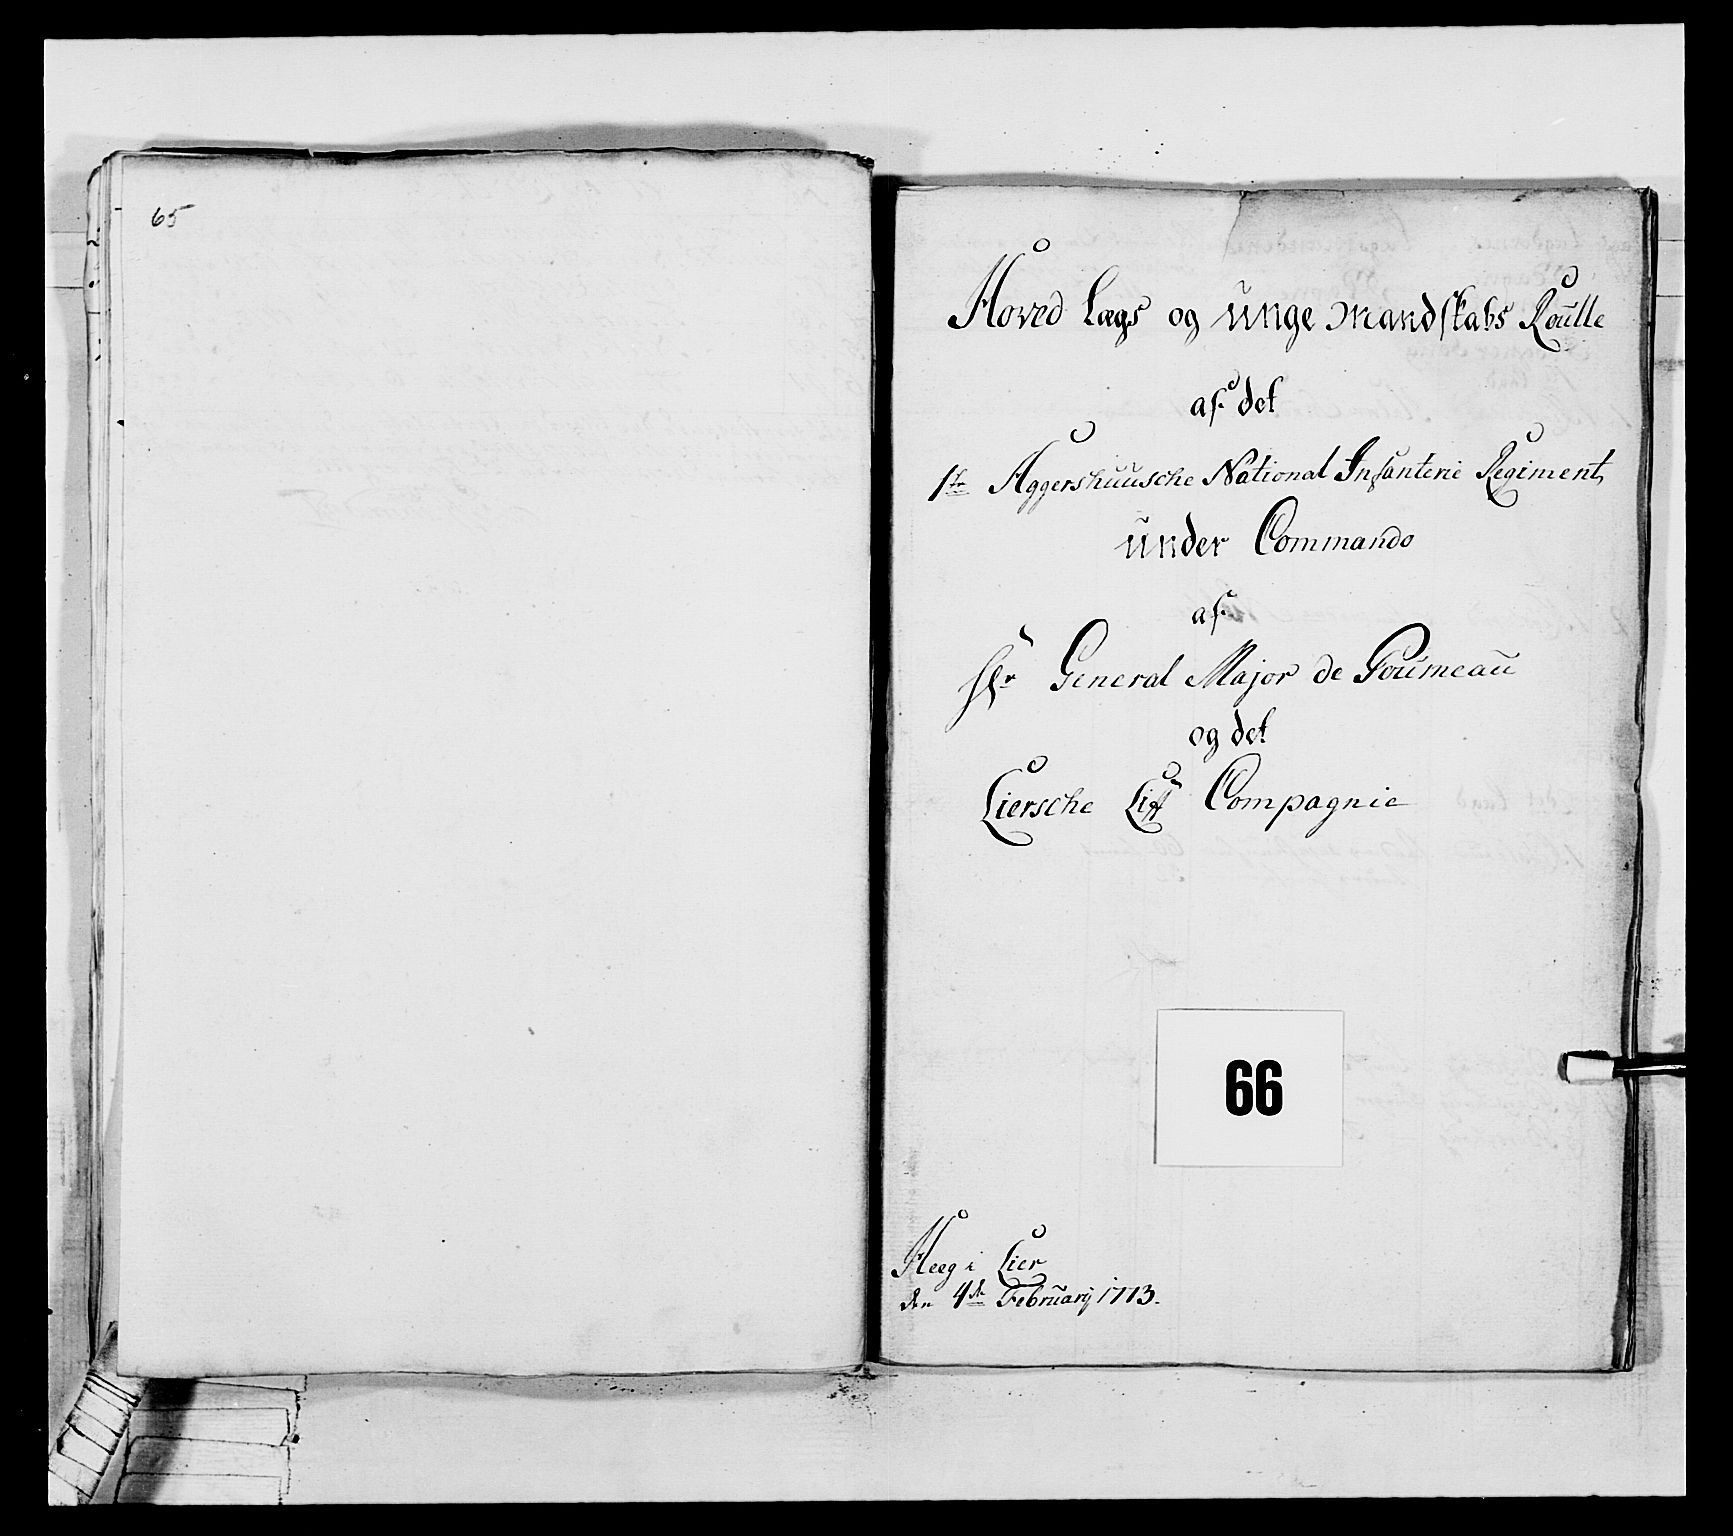 65
Hoved Lægs og unge Mandskabs Roulle
af det
1te Aggershuusche National Infanterie Regiment
under Commando
af
Hr General Major de Poumeau
og det
Liersche Liff Compagnie
66
Heeg i Lier
den 4de Februarÿ 1773.